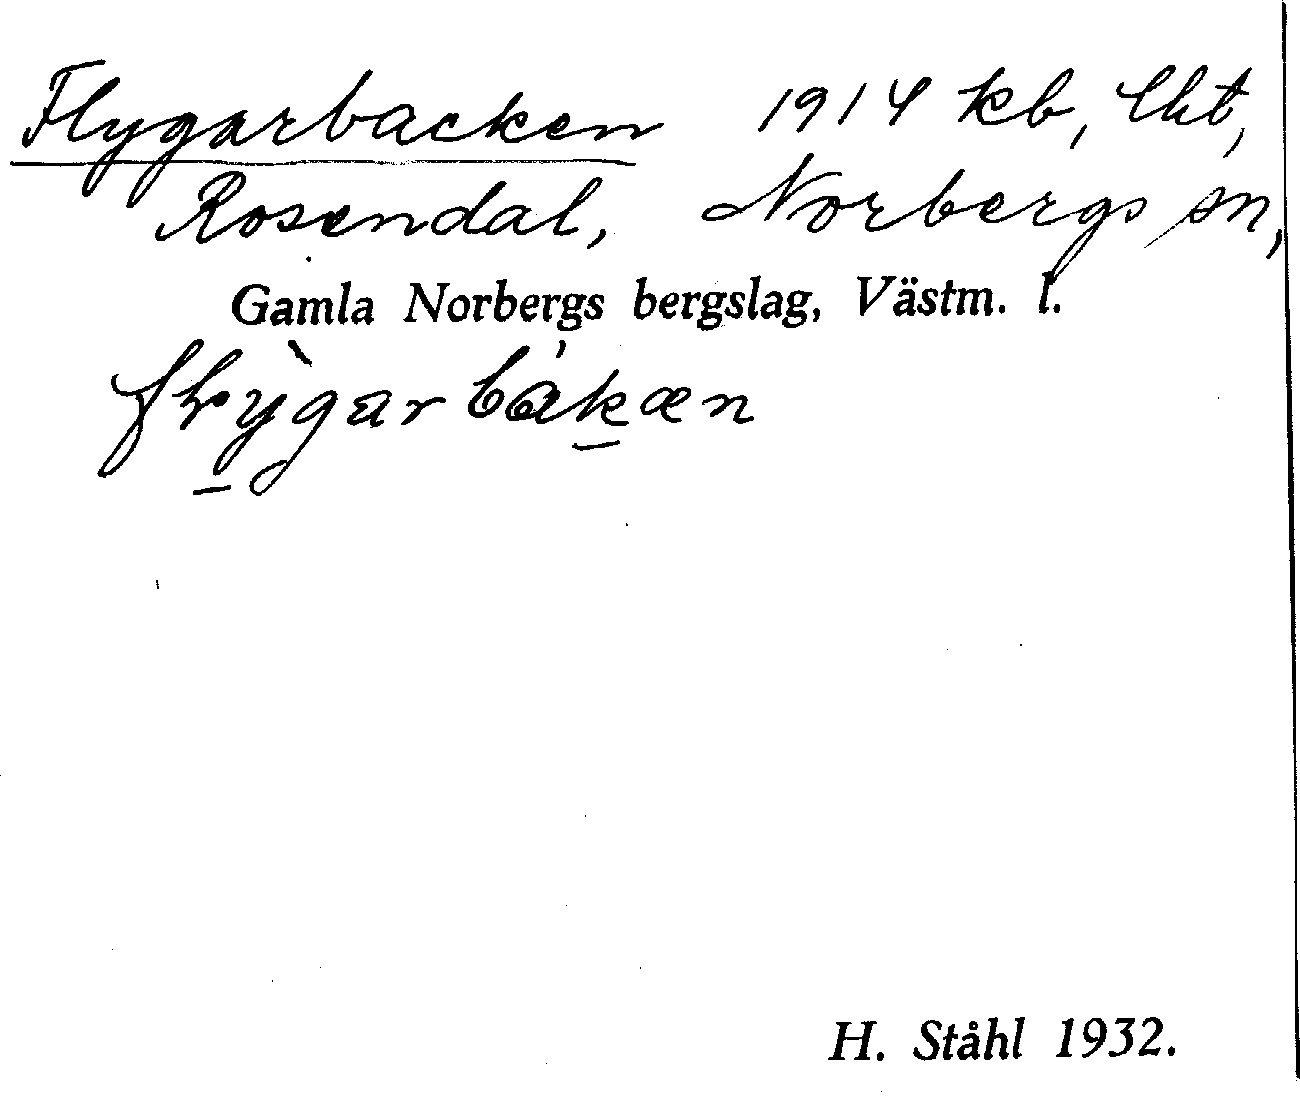 Flygarbacken 1914 kb, lht,
Rosendal, Norbergs sn,
Gamla Norbergs bergslag, Västm. l.
flỳgarbákæn
H. Ståhl 1932.